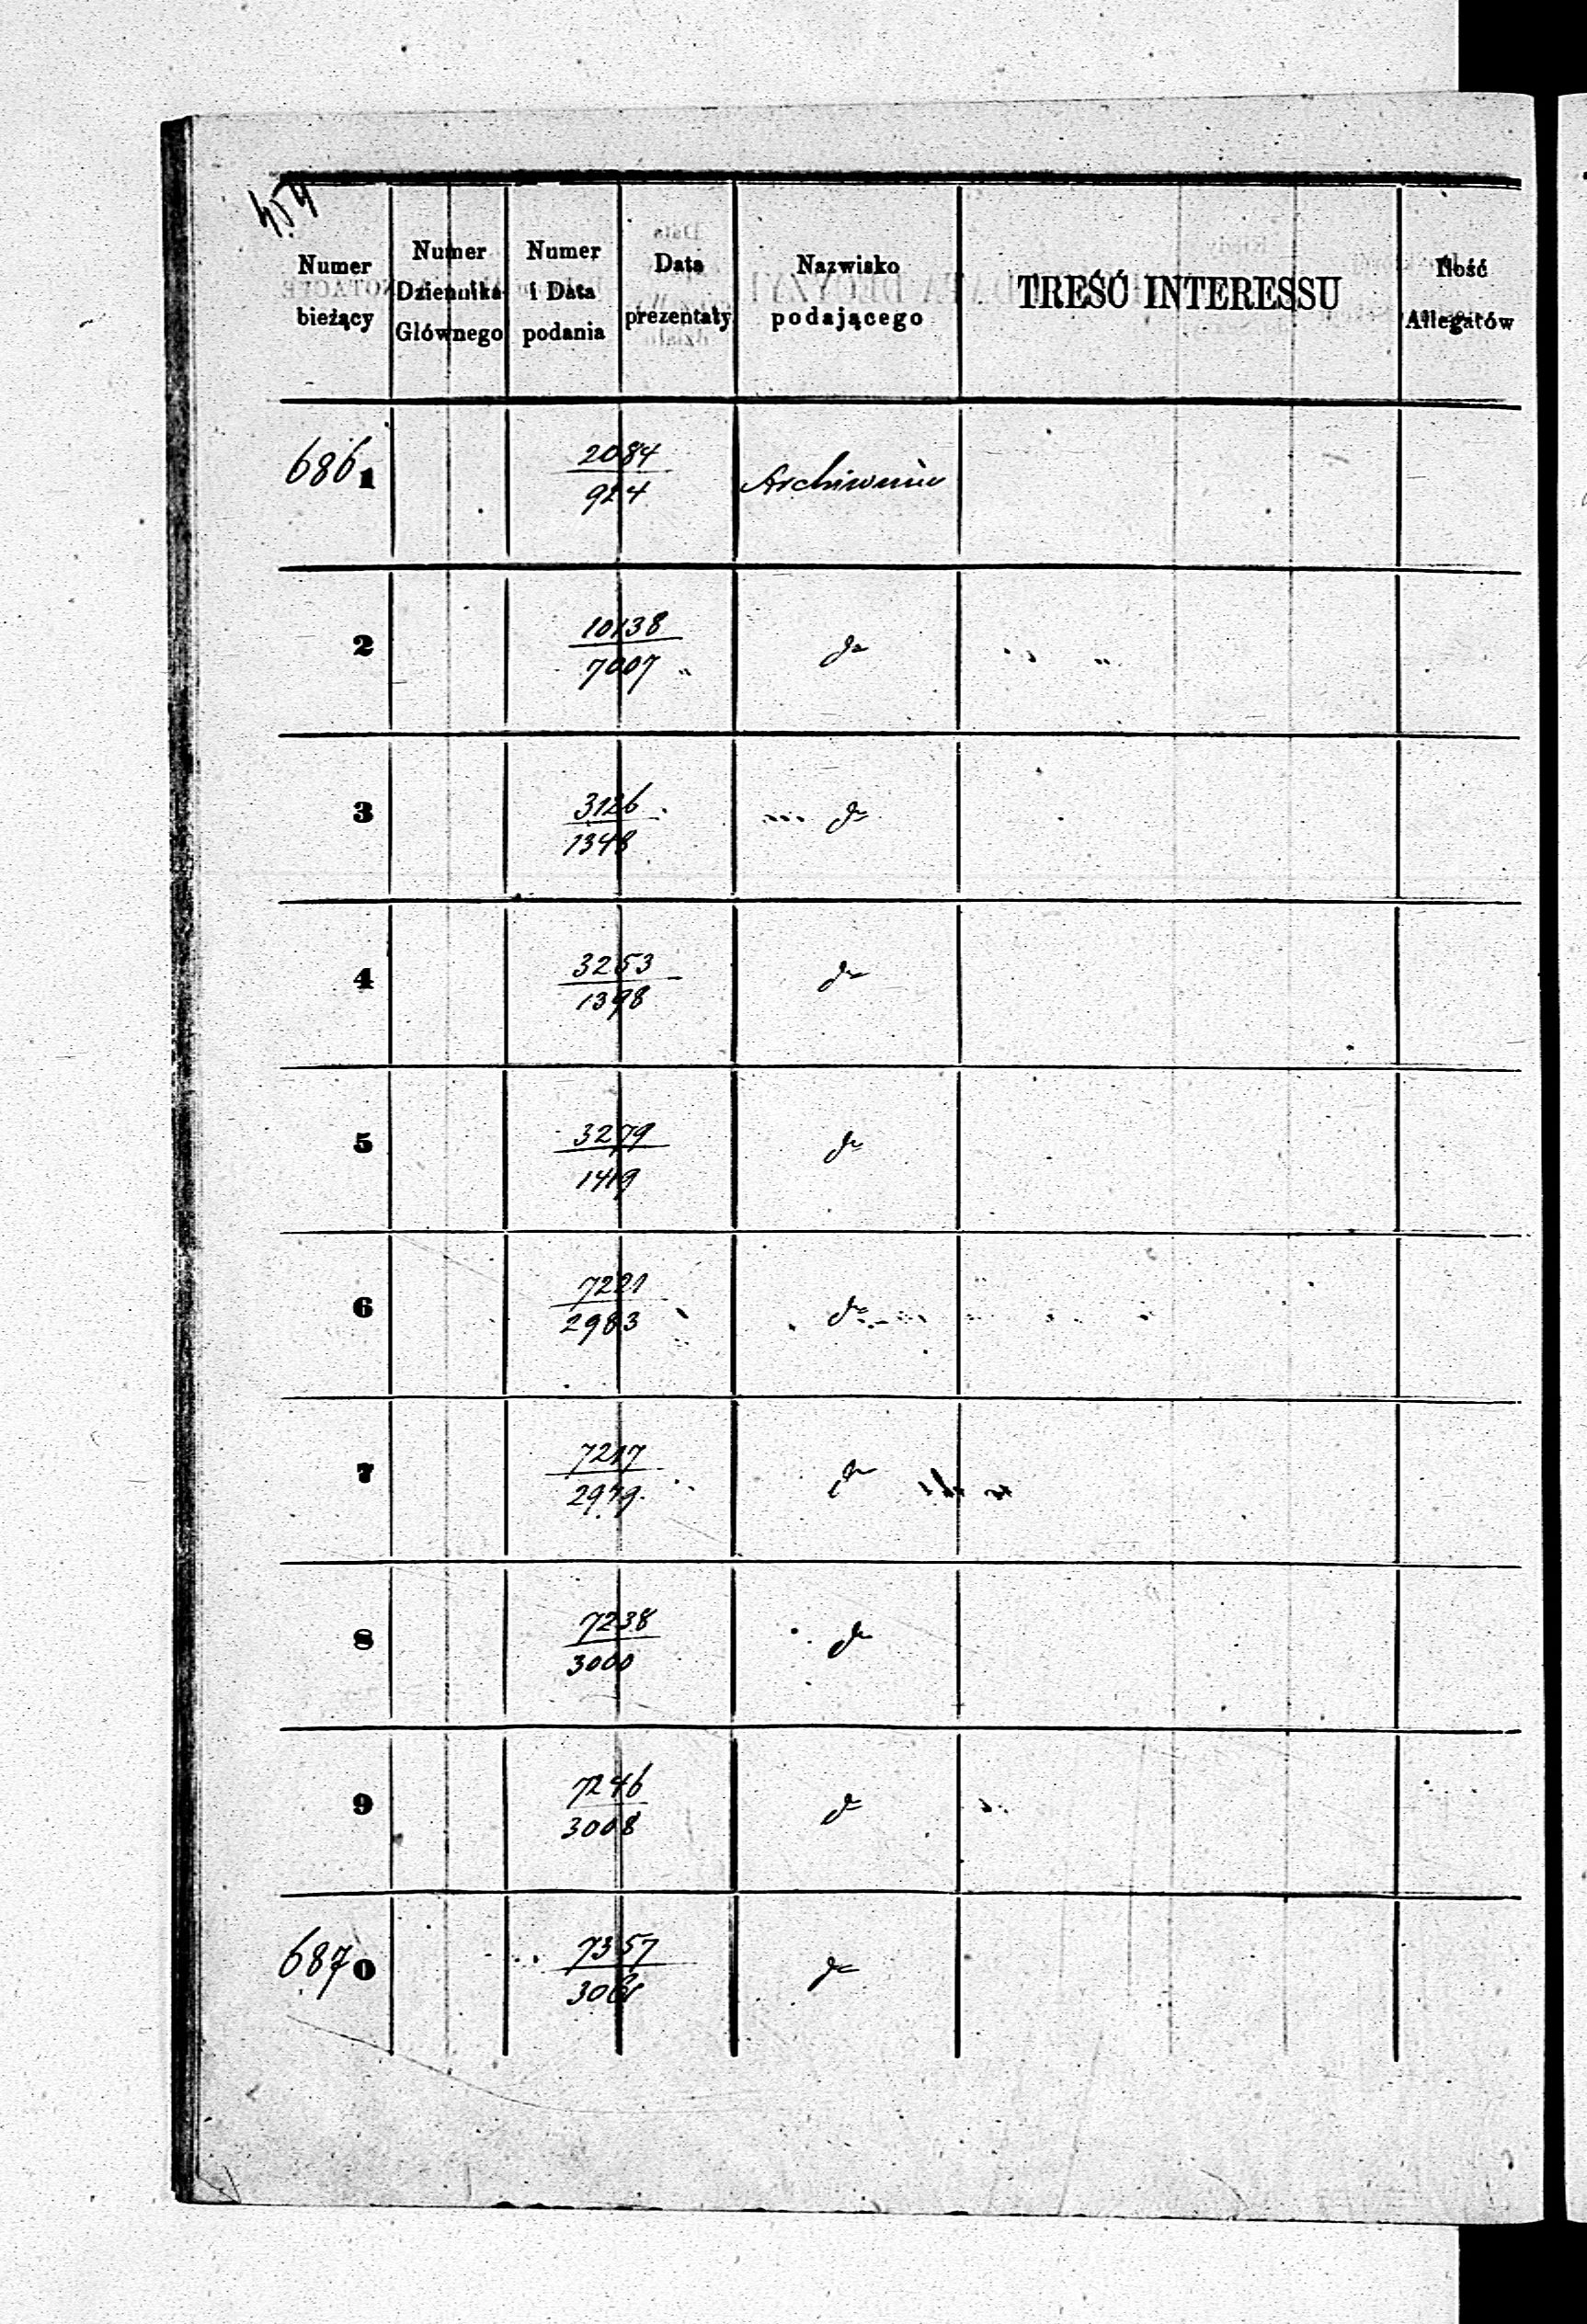 454
Numer bieżący
Numer Dziennika Głównego
Numer i Data podania
Data prezentaty
Nazwisko podającego
TREŚĆ INTERESSU
Ilość Allegatów
6861 2084 Archiwum
924
2 10138 do
7007
3 3126 do
1348
4 3253 do
1398
5 3279 do
1419
6 7221 do
2983
7 7217 do
2979
8 7238 do
3000
9 7246 do
3008
6870 7357 do